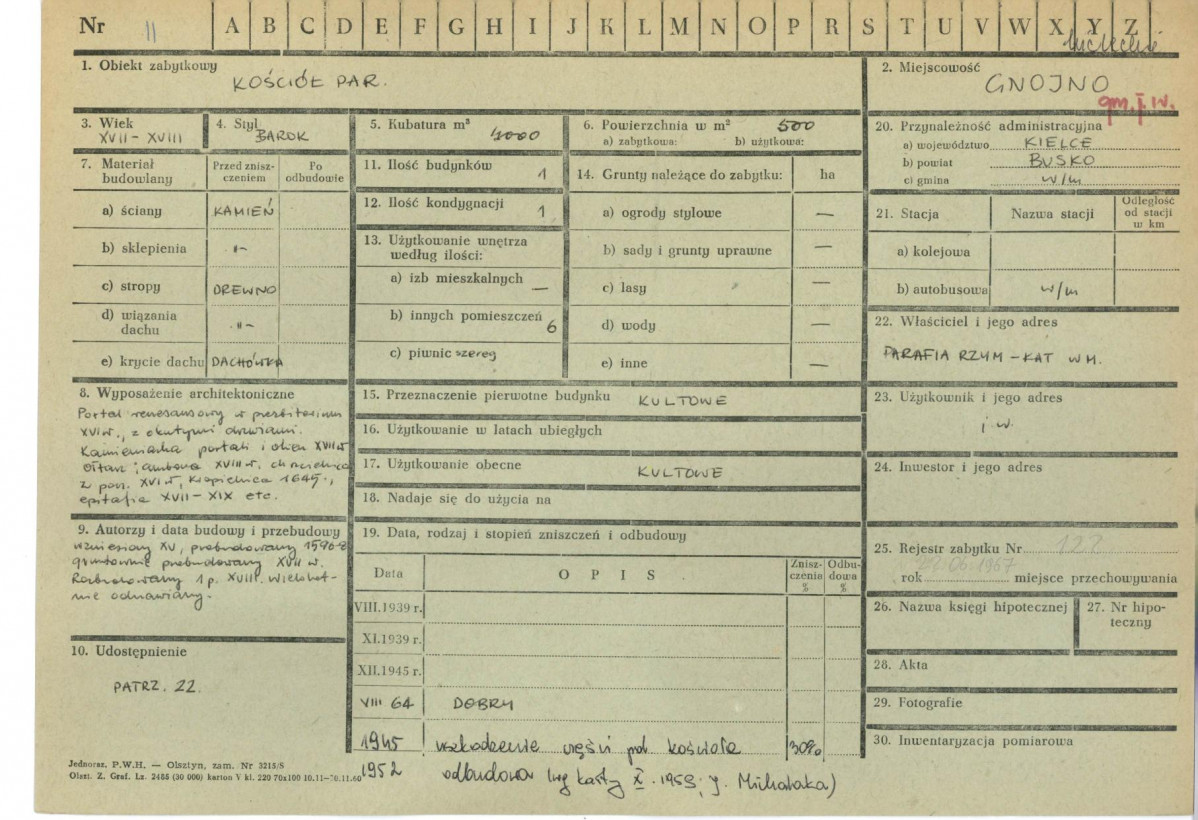 Nr 11 A B C D E F G H I J K L M N O P R S T U V W X Y Z
1. Obiekt zabytkowy
KOŚCIÓŁ PAR.
2. Miejscowość
GNOJNO
gm. j. w.
3. Wiek
XVII – XVIII
4. Styl
BAROK
5. Kubatura m³
4000
6. Powierzchnia w m² 500
a) zabytkowa: b) użytkowa:
7. Materiał budowlany
Przed zniszczeniem
Po odbudowie
a) ściany KAMIEŃ
b) sklepienia -"-
c) stropy DREWNO
d) wiązania dachu -"-
e) krycie dachu DACHÓWKA
8. Wyposażenie architektoniczne
Portal renesansowy w prezbiterium
XVI w., z okutymi drzwiami.
Kamieniarka portali i okien XVII w
Ołtarz i ambona XVIII w. chrzcielnica
z pocz. XVI w, kropielnica 1645.,
epitafia XVII – XIX etc.
9. Autorzy i data budowy i przebudowy
wzniesiony XV, przebudowany 1590-8
gruntownie przebudowany XVII w.
Rozbudowany 1 p. XVIII. Wielokrot-
nie odnawiany.
10. Udostępnienie
PATRZ. 22.
11. Ilość budynków 1
12. Ilość kondygnacji 1
13. Użytkowanie wnętrza
według ilości:
a) izb mieszkalnych —
b) innych pomieszczeń 6
c) piwnic szereg
14. Grunty należące do zabytku: ha
a) ogrody stylowe —
b) sady i grunty uprawne —
c) lasy —
d) wody —
e) inne —
15. Przeznaczenie pierwotne budynku KULTOWE
16. Użytkowanie w latach ubiegłych
17. Użytkowanie obecne KULTOWE
18. Nadaje się do użycia na
19. Data, rodzaj i stopień zniszczeń i odbudowy
Data OPIS Zniszczenia % Odbudowa %
VIII.1939 r.
XI.1939 r.
XII.1945 r.
VIII 64 DOBRY
1945 uszkodzenie części płd kościoła 30%
1952 odbudowa (wg karty X. 1959; J. Michalaka)
20. Przynależność administracyjna
a) województwo KIELCE
b) powiat BUSKO
c) gmina w/m
21. Stacja Nazwa stacji Odległość od stacji w km
a) kolejowa
b) autobusowa w/m
22. Właściciel i jego adres
PARAFIA RZYM – KAT W M.
23. Użytkownik i jego adres
j. w.
24. Inwestor i jego adres
25. Rejestr zabytku Nr
rok 22.06.1967 miejsce przechowywania
26. Nazwa księgi hipotecznej
27. Nr hipoteczny
28. Akta
29. Fotografie
30. Inwentaryzacja pomiarowa
Jednoraz. P.W.H. — Olsztyn, zam. Nr 3215/S
Olszt. Z. Graf. Lz. 2485 (30 000) karton V kl. 220 70x100 10.11-30.11.60